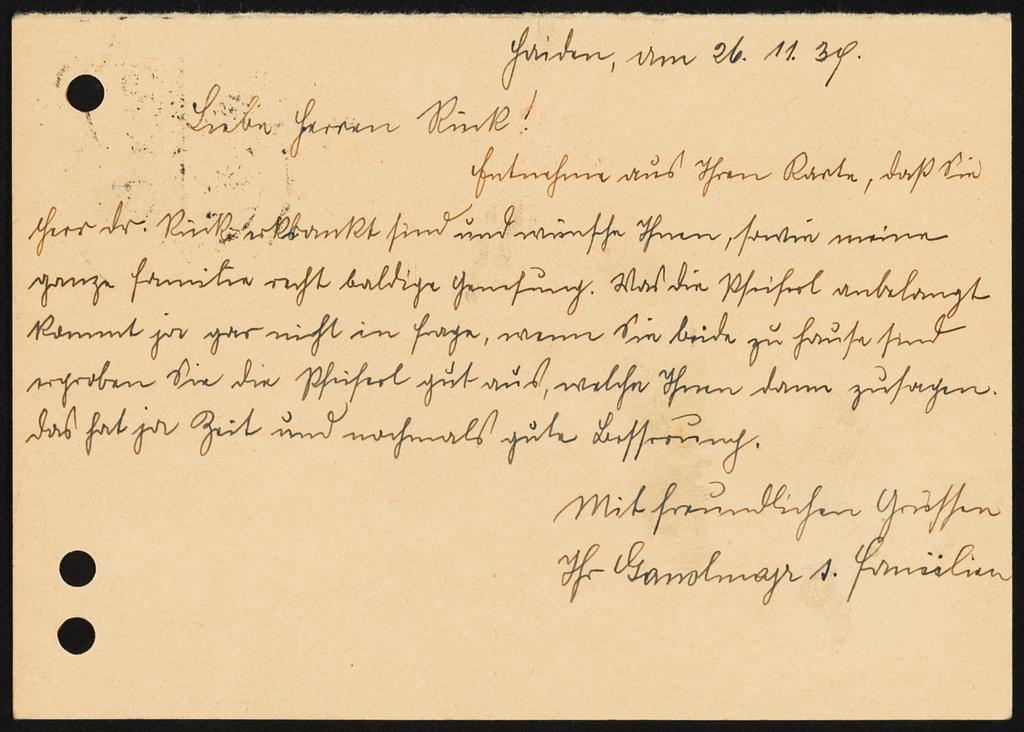 Haiden, am 26. 11. 39.
Liebe Herren Rück!
Entnehme aus Ihren Karte, daß Sie
Herr Dr. Rück erkrankt sind und wünsche Ihnen, sowie meine
ganze Familie recht baldige Genesung. Was die Pfeiferl anbelangt
kommt ja gar nicht in Frage, wenn Sie beide zu Hause sind
erproben Sie die Pfeiferl gut aus, welche Ihnen dann zusagen.
Das hat ja Zeit und nochmals gute Besserung.
Mit freundlichen Grüssen
Ihr s. Familien